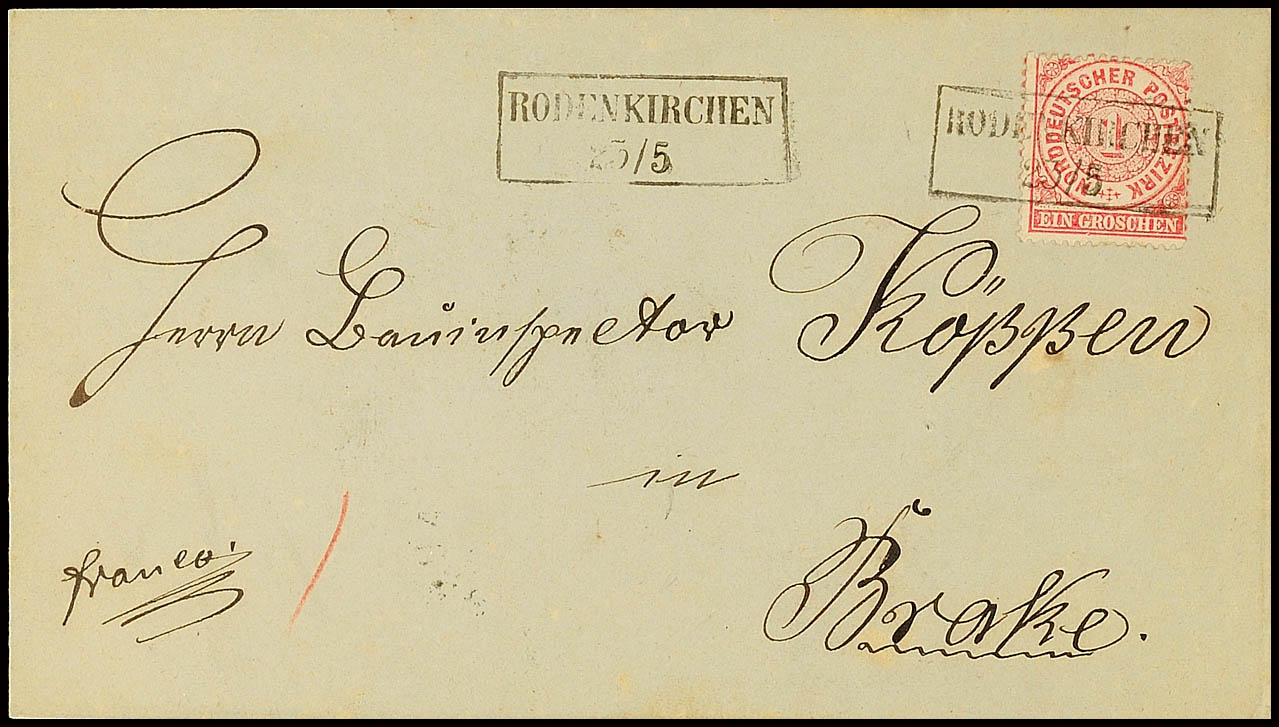 RODENKIRCHEN
25/5
RODENKIRCHEN
25/5
NORDDEUTSCHER POSTBEZIRK
1
EIN GROSCHEN
Herrn Bauinspector Köppen
in
Brake.
franco.